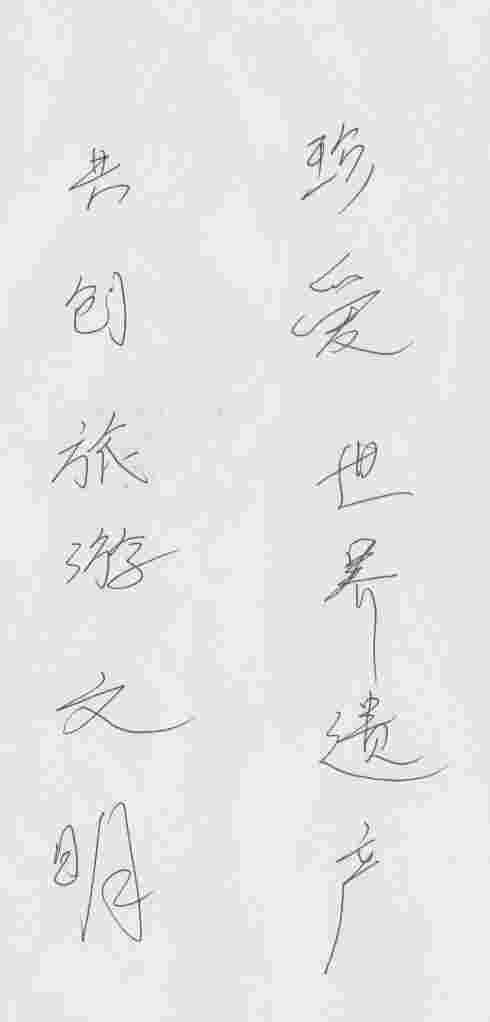 珍爱世界遗产
共创旅游文明